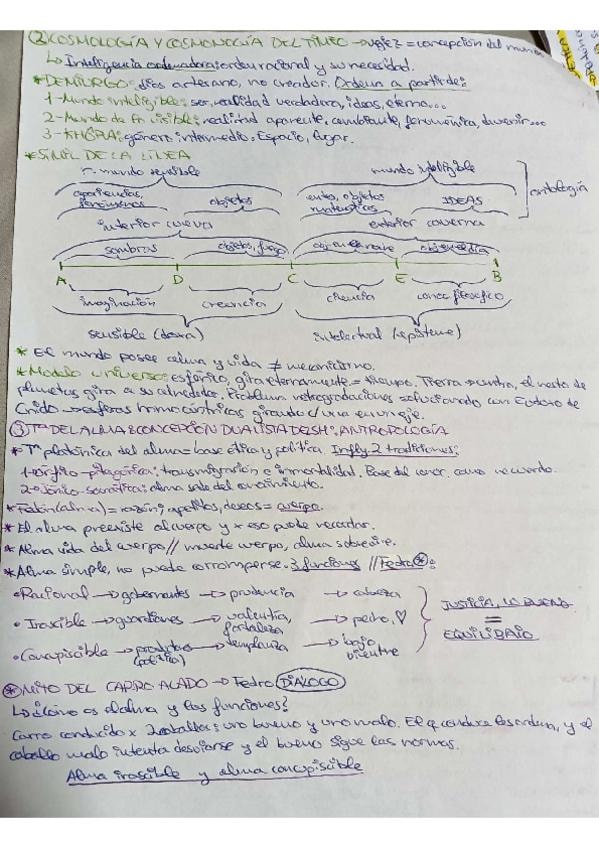 ② COSMOLOGÍA Y COSMONOGÍA DEL TIMEO → vejez = concepción del mundo
↳ Inteligencia ordenadora: orden racional y su necesidad.
* DEMIURGO: dios artesano, no creador. Ordena a partir de:
1- Mundo inteligible: ser, realidad verdadera, ideas, eterno...
2- Mundo de lo visible: realidad aparente, cambiante, fenoménica, devenir...
3- KHÔRA: género intermedio. Espacio, lugar.
* SÍMIL DE LA LÍNEA
r. mundo sensible mundo inteligible
apariencias, fenómenos objetos entes, objetos matemáticos IDEAS ontología
interior cueva exterior caverna
sombras objetos, fuego
A D C E B
imaginación creencia ciencia conoc filosófico
sensible (doxa) intelectual (episteme)
* El mundo posee alma y vida ≠ mecanicismo.
* Modelo universo: esférico, gira eternamente = tiempo. Tierra = centro, el resto de
planetas gira a su alrededor. Problema retrogradaciones solucionado con Eudoxo de
Cnido → esferas homocéntricas girando c/una en un eje.
③ Tª DEL ALMA & CONCEPCIÓN DUALISTA DEL SH: ANTROPOLOGÍA
* Tª platónica del alma = base ética y política. Infly 2 tradiciones:
1- órfico-pitagórica: transmigración e inmortalidad. Base del conoc. como recuerdo.
2- jónico-socrática: alma sede del conocimiento.
* Fedón (alma) = razón; apetitos, deseos = cuerpo.
* El alma preexiste al cuerpo y x eso puede recordar.
* Alma vida del cuerpo // muerte cuerpo, alma sobrevive.
* Alma simple, no puede corromperse. 3 funciones // Fedro ⊛:
• Racional → gobernantes → prudencia → cabeza
• Irascible → guardianes → valentía, fortaleza → pecho, ♡
• Concupiscible → productores (política) → templanza → bajo vientre
JUSTICIA, LO BUENO
=
EQUILIBRIO
⊛ MITO DEL CARRO ALADO → Fedro DIÁLOGO
↳ ¿Cómo es el alma y las funciones?
Carro conducido x 2 caballos: uno bueno y uno malo. El q conduce les ordena, y el
caballo malo intenta desviarse y el bueno sigue las normas.
Alma irascible y alma concupiscible